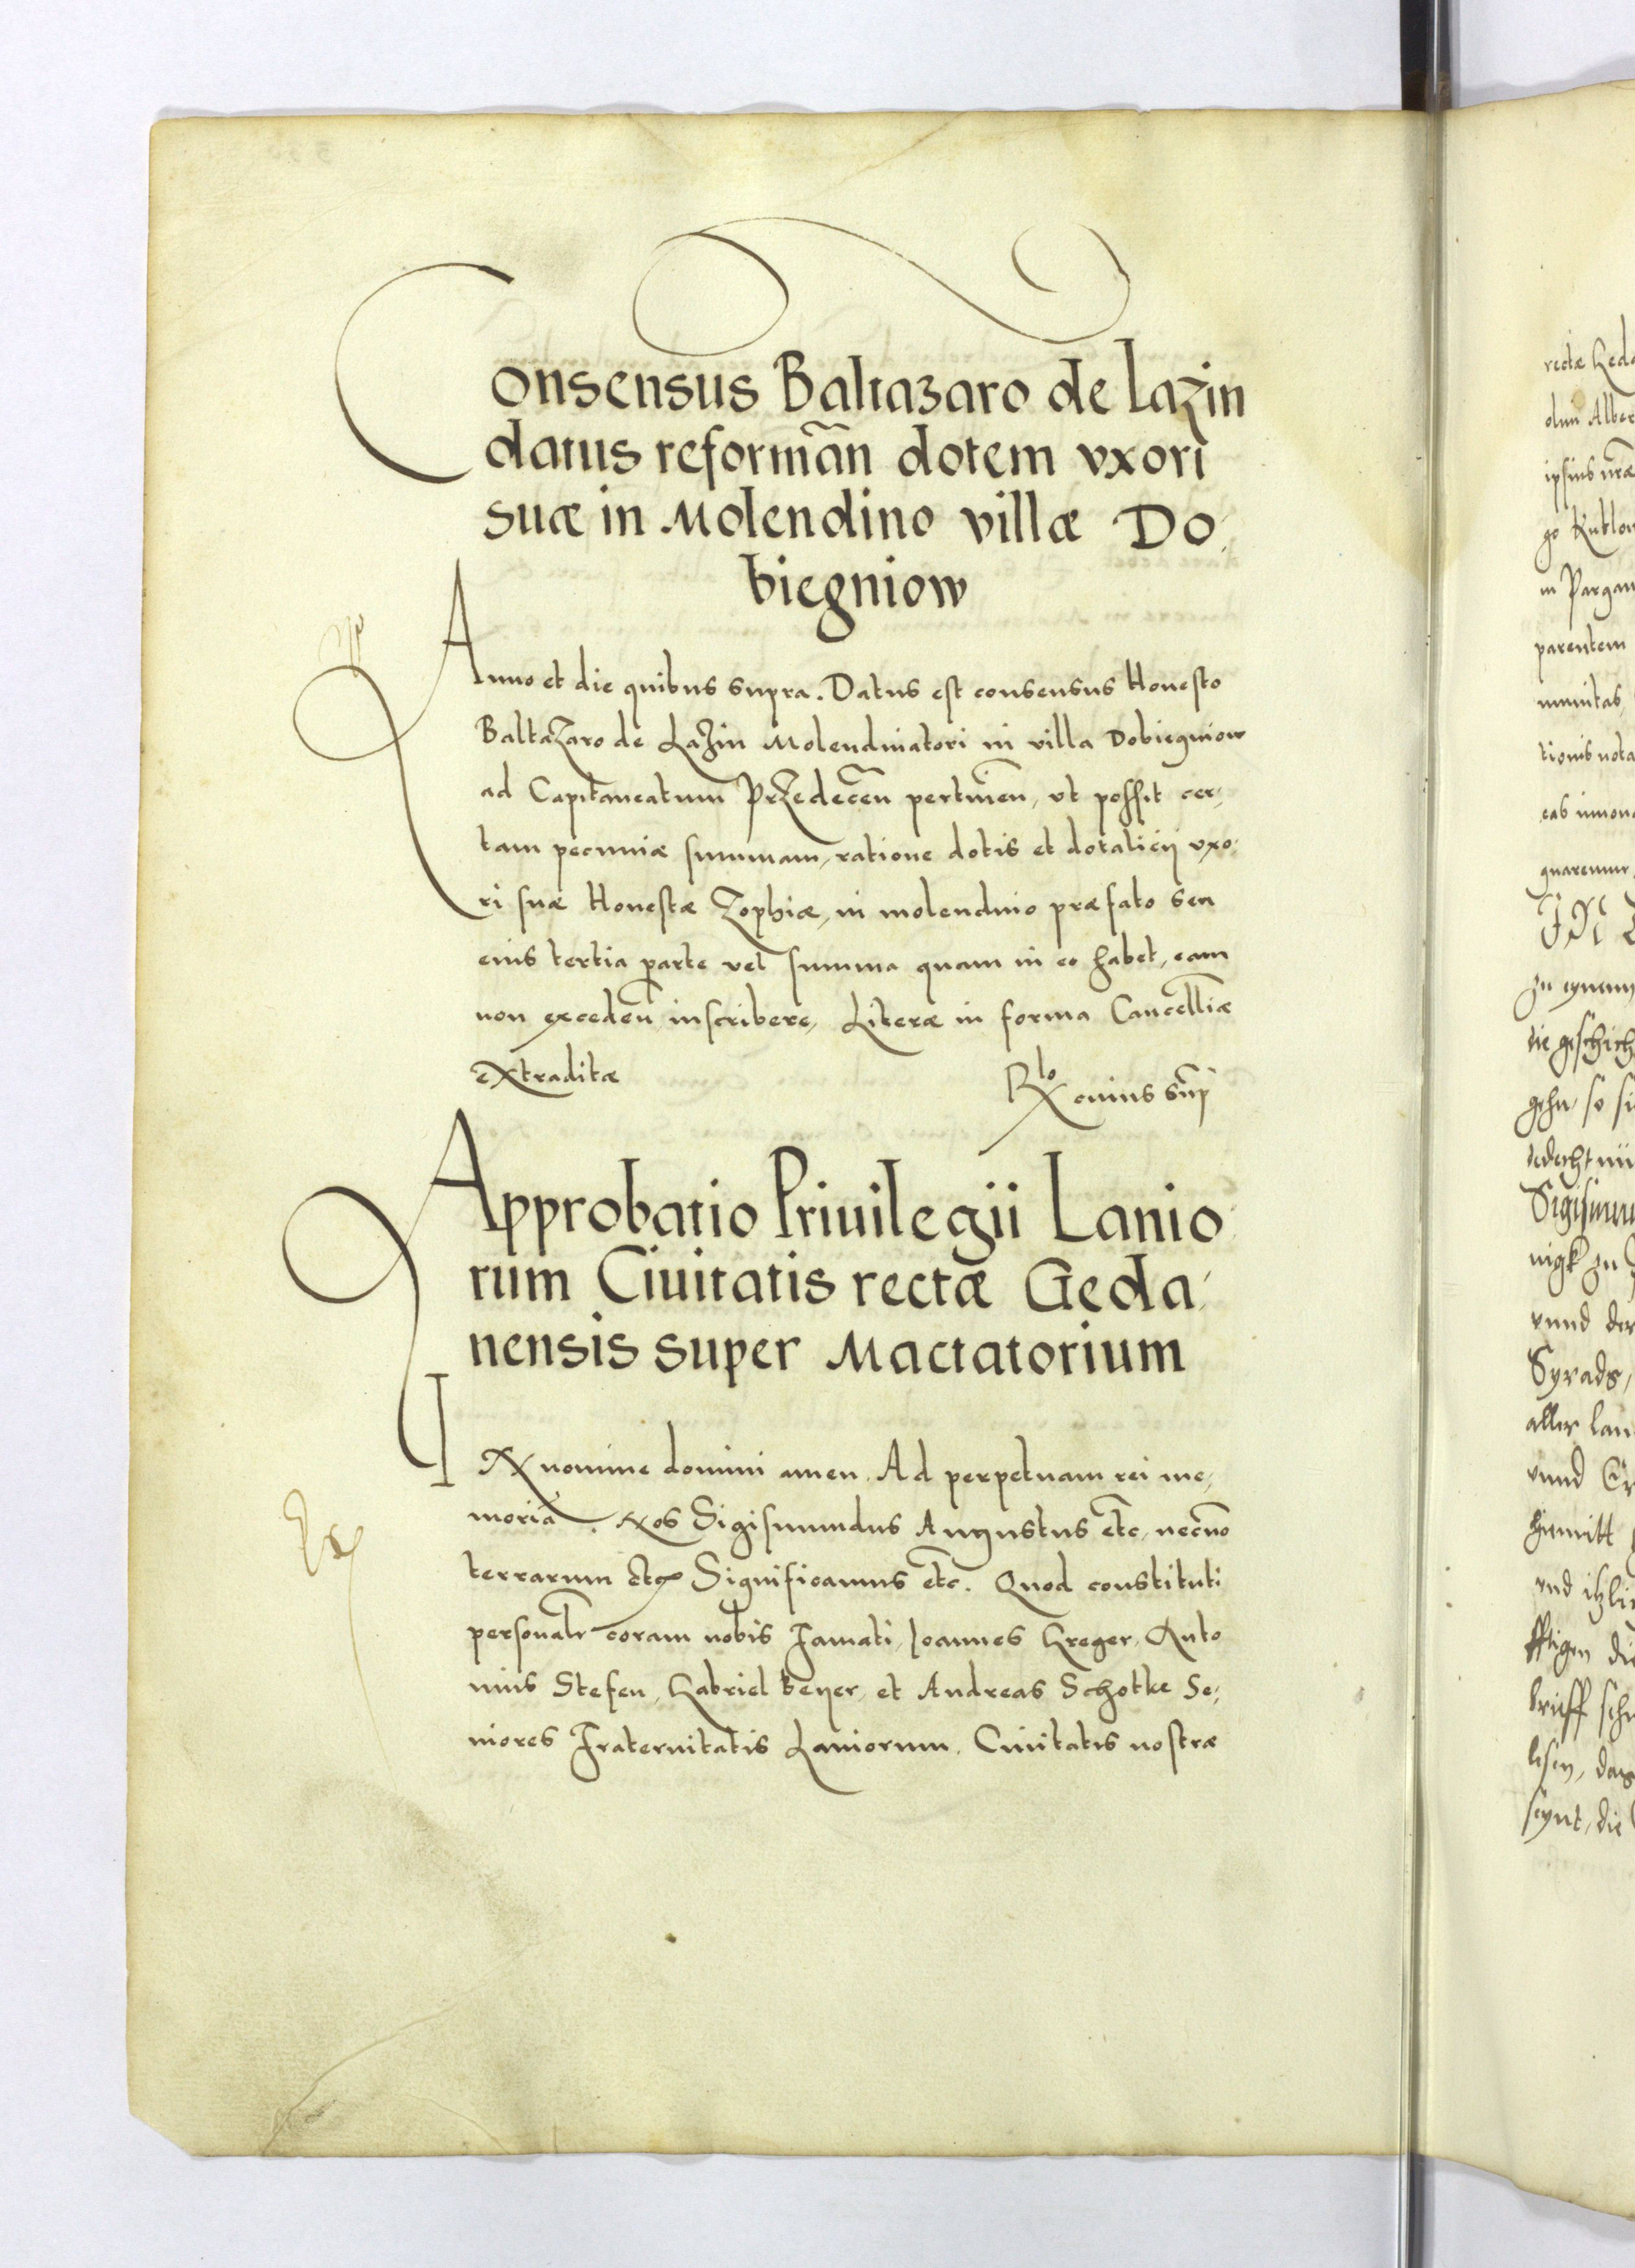 Consensus Baltazaro de Lazin
datus reformãn dotem vxori
suæ in Molendino villæ Do,
biegniow
Anno et die quibus supra. Datus est consensus Honesto
Baltazaro de Lazin Molendinatori in villa Dobiegniow
ad Capitaneatum Przedecẽn pertinẽn, vt possit cer,
tam pecuniæ summam, ratione dotis et dotalicij vxo,
ri suæ Honestæ Zophiæ, in molendino præfato seu
eius tertia parte vel summa quam in eo habet, eam
non excedeñ inscribere, Literæ in forma Cancelliæ
extraditæ
Rlo cuius sup
Approbatio Priuilegii Lanio,
rum Ciuitatis rectæ Geda,
nensis super Mactatorium
IN nomine domini amen. Ad perpetuam rei me,
moriã. Nos Sigismundus Augustus etc, necno
terrarum etc Significamus etc. Quod constituti
personalr coram nobis Famati, Joannes Greger, Anto
nius Stefen, Gabriel Beyer, et Andreas Schotke Se,
niores Fraternitatis Laniorum, Ciuitatis nostræ
rectæ Geda
olim Alber
ipsius nræ
parentem
tionis nota
IN
die geschich
Sigismun
nigk zu
vnnd der
Syrads,
aller lan
vnnd Er
hiemitt
vnd itzlic
brieff sch
lesen, das
seynt, die